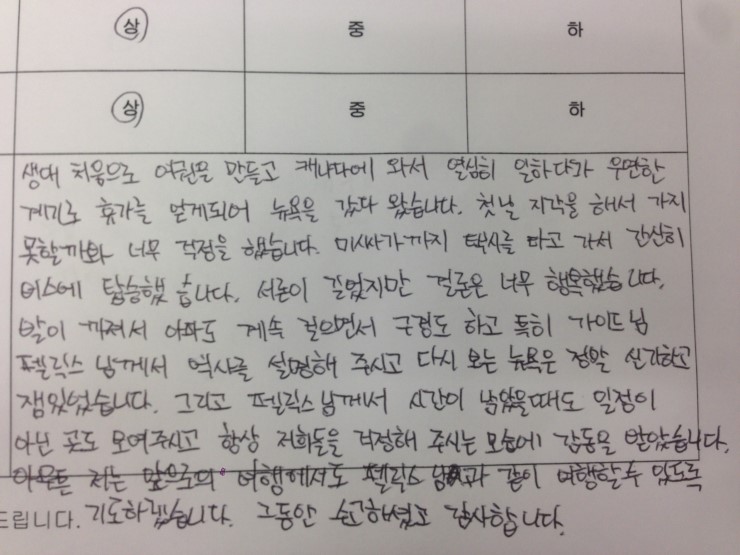 상 중 하
상 중 하
생애 처음으로 여권을 만들고 캐나다에 와서 열심히 일하다가 우연한
계기로 휴가를 얻게되어 뉴욕을 갔다 왔습니다. 첫날 지각을 해서 가지
못할까봐 너무 걱정을 했습니다. 미싸가까지 택시를 타고 가서 간신히
버스에 탑승했습니다. 서론이 길었지만 결론은 너무 행복했습니다.
발이 까져서 아파도 계속 걸으면서 구경도 하고 특히 가이드님
펠릭스 님께서 역사를 설명해 주시고 다시 보는 뉴욕은 정말 신기하고
잼있었습니다. 그리고 펠릭스님께서 시간이 남았을때도 일정이
아닌 곳도 보여주시고 항상 저희들을 걱정해 주시는 모습에 감동을 받았습니다.
아무튼 저는 앞으로의 여행에서도 펠릭스 님과 같이 여행할수 있도록
드립니다. 기도하겠습니다. 그동안 수고하셨고 감사합니다.